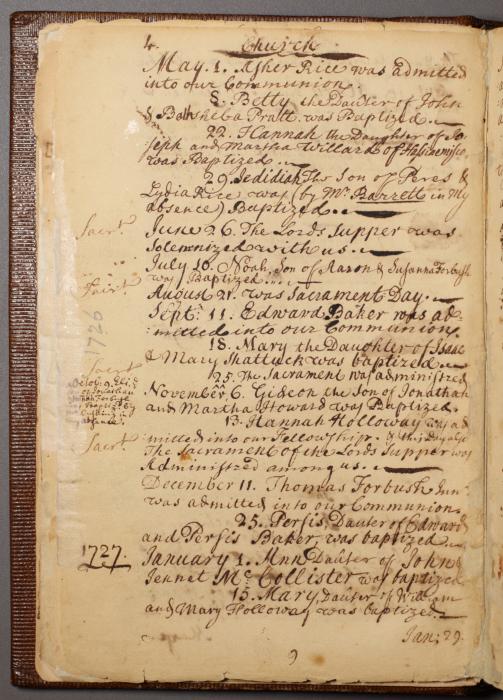 4. Church
May. 1. Asher Rice was admitted
into our Communion.
8. Betty the Dauter of John
& Bathsheba Pratt was Baptized.
22. Hannah the Daughter of Jo-
seph and Martha Willard of Hassenemisco
was Baptized.
29. Jedidiah The Son of Peres &
Lydia Rice was (by Mr. Barrett in My
absence) Baptized.
Sacrt. June 26. The Lords Supper was
Solemnized with us.
July 10. Noah, Son of Aaron & Susanna Forbush
was Baptized.
August 21. was Sacrament Day.
1726
Septr. 11. Edward Baker was ad-
mitted into our Communion.
18. Mary the Daughter of Isaac
& Mary Shattuck was baptized.
Sacrt. 25. The Sacrament was administred
Octob. 9. Eli
of Jonathan
Forbush
by
in
absence.
November. 6. Gideon the Son of Jonathan
and Martha Howard was Baptized.
13. Hannah Holloway was ad
mitted into our Fellowship. & this Day also
Sacrt. The Sacrament of the Lords Supper was
Administred among us.
December 11. Thomas Forbush Junr.
was admitted into our Communion.
25. Persis, Dauter of Edward
and Persis Baker, was baptized.
1727. January 1. Ann Dauter of John &
Jennet Mc. Collister was baptized
15. Mary, Dauter of William
and Mary Holloway was baptized.
Jan; 29.
9